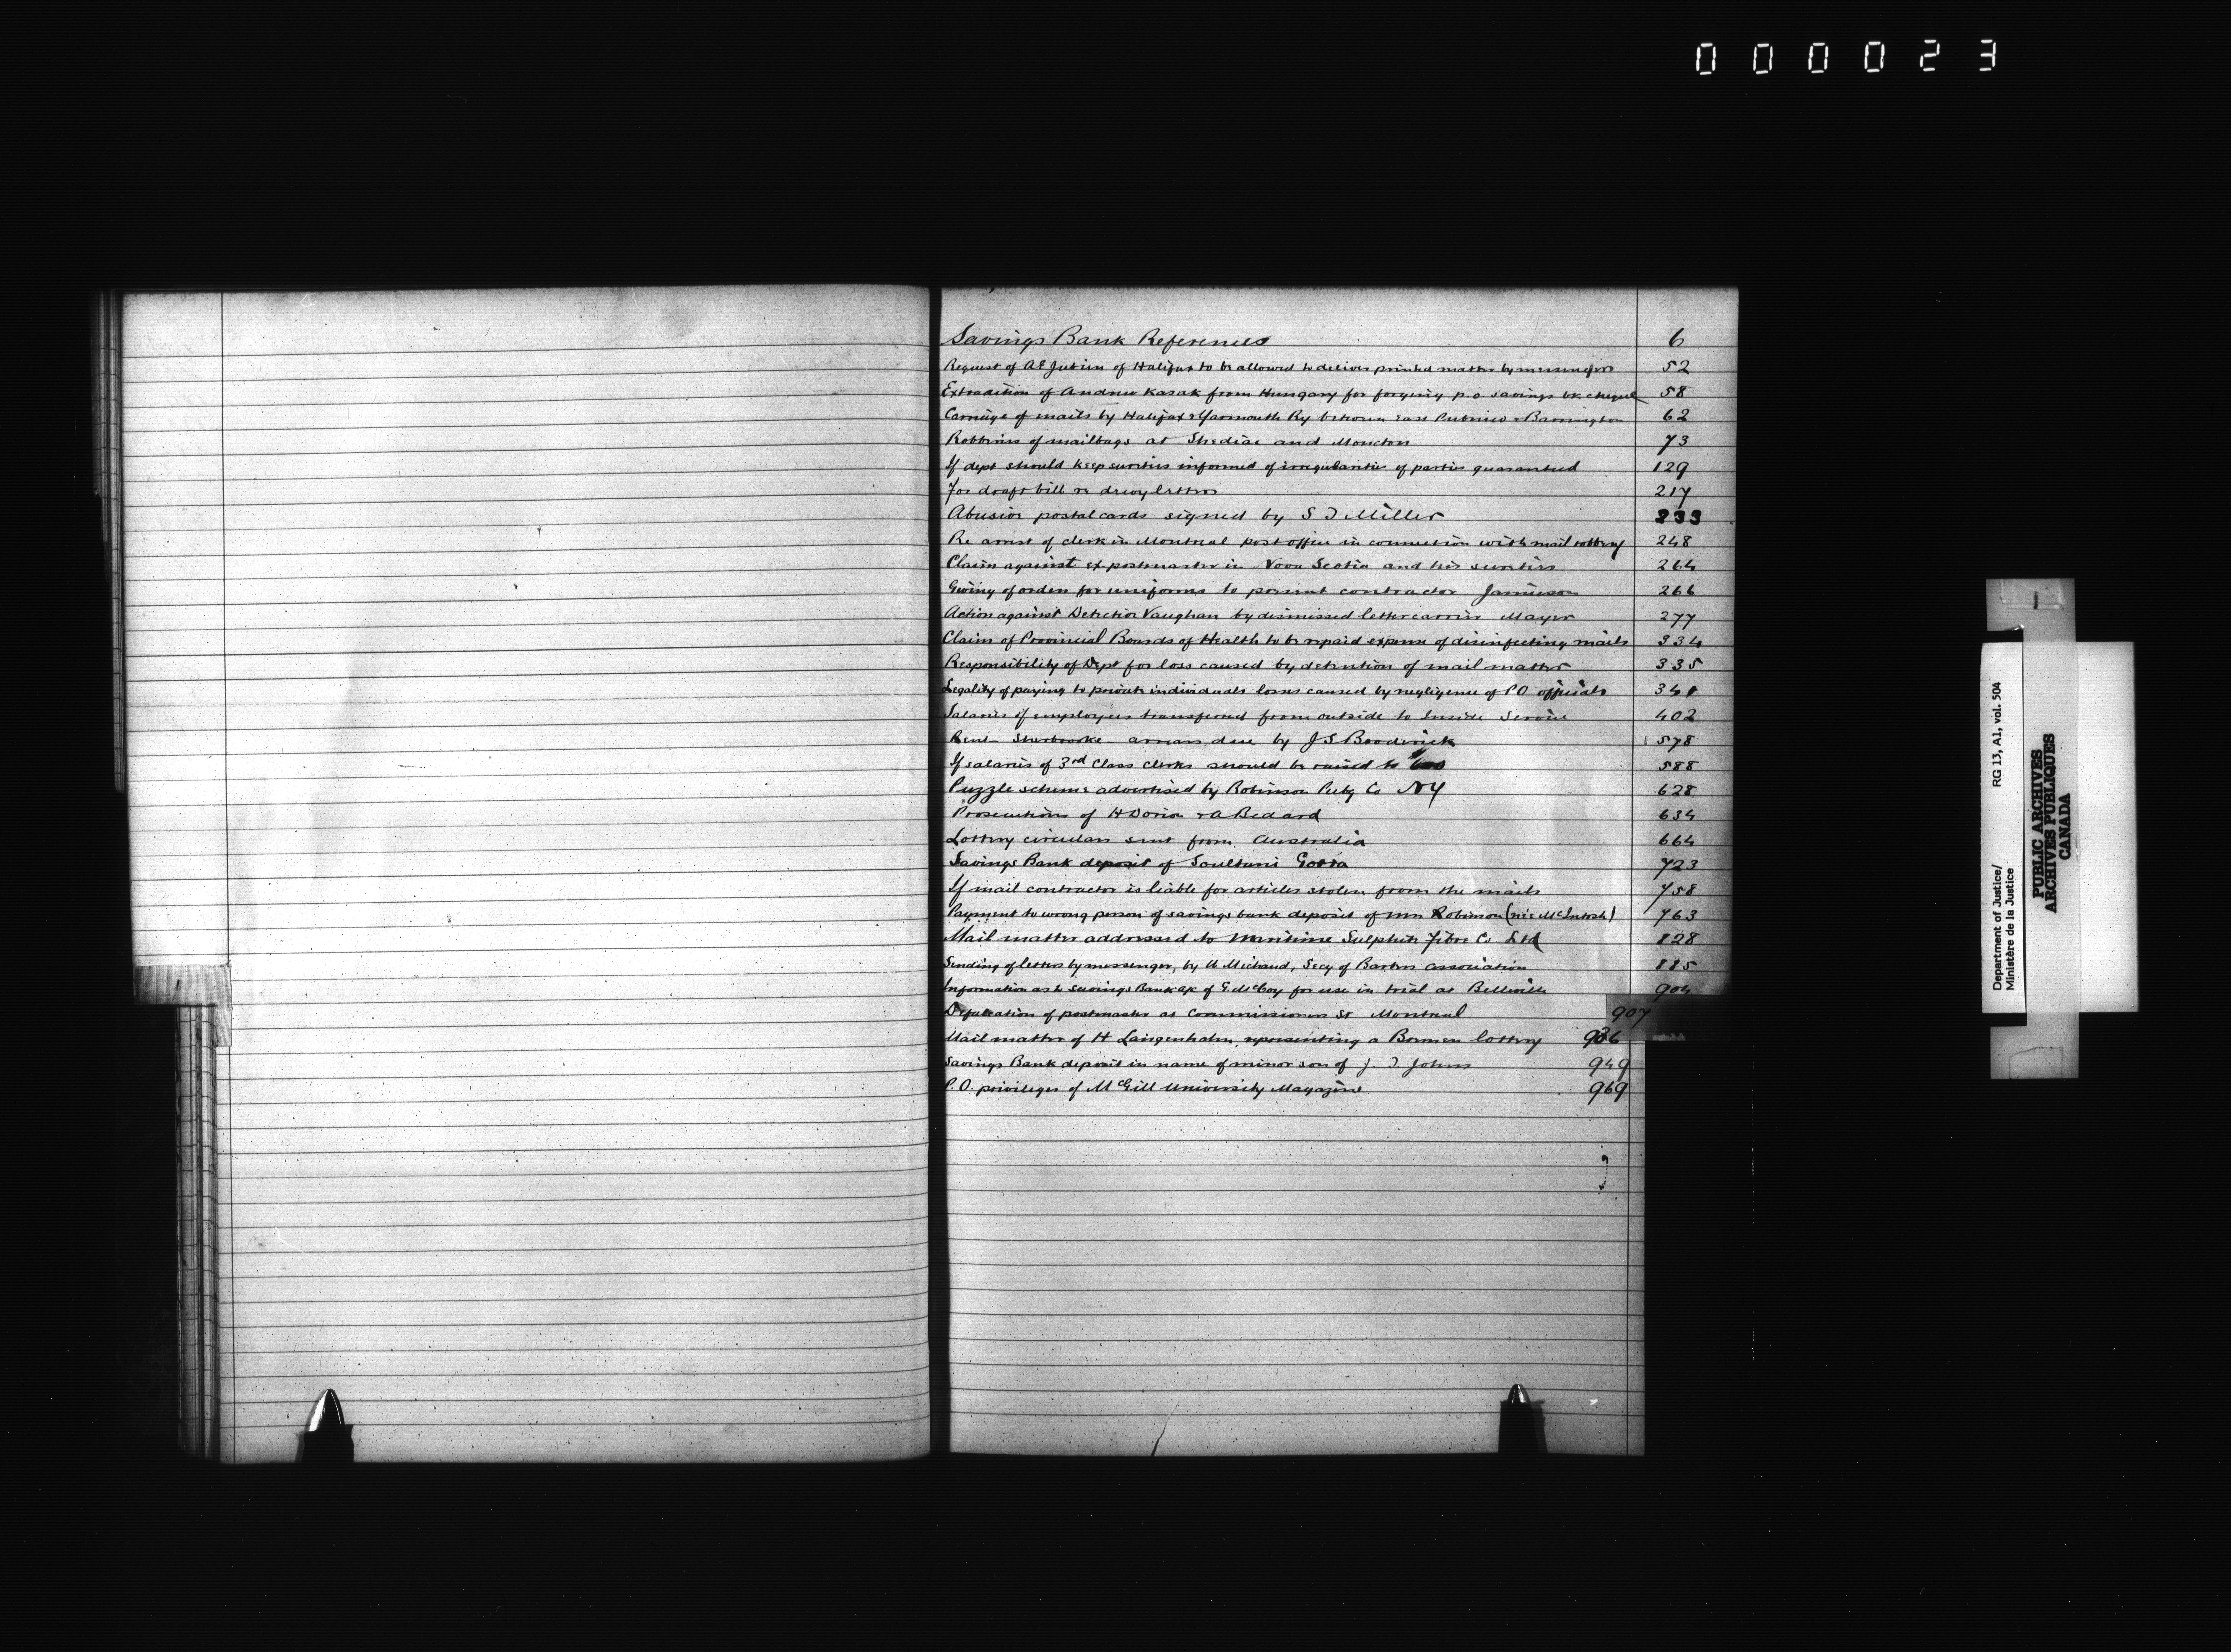 000023
Savings Bank References 6
Request of of Halifax to be allowed to deliver printed matter by messengers 52
Extradition of Andrew Kasak from Hungary for forging p.o. savings bk cheques 58
Carriage of mails by Halifax & Yarmouth Ry between East Pubnico & Barrington 62
Robberies of mailbags at Shediac and Moncton 73
If dept should keep sureties informed of irregularities of parties guaranteed 129
For draft bill re decoy letters 217
Abusive postal cards signed by S J Miller 233
Re arrest of clerk in Montreal post office in connection with mail robbery 248
Claim against ex postmaster in Nova Scotia and his sureties 264
Giving of orders for uniforms to present contractor Jamieson 266
Action against Detective Vaughan by dismissed letter carrier Mayer 277
Claim of Provincial Boards of Health to be repaid expense of disinfecting mails 334
Responsibility of Dept for loss caused by detention of mail matter 335
Legality of paying to private individuals losses caused by negligence of P O officials 341
Salaries of employees transferred from outside to Inside Service 402
Rent Sherbrooke arrears due by J S Broderick 578
If salaries of 3rd Class Clerks should be raised to 588
Puzzle scheme advertised by Robinson Pubg Co NY 628
Prosecutions of H Dorion & A Bedard 634
Lottery circulars sent from Australia 664
Savings Bank deposit of 723
If mail contractor is liable for articles stolen from the mails 758
Payment to wrong person of savings bank deposit of Mrs Robinson (née McIntosh) 763
Mail matter addressed to Maritime Sulphite Fibre Co Ltd 828
Sending of letters by messenger, by U Michaud, Secy of Barbers Association 885
Information as to Savings Bank a/c of G. McCoy for use in trial at Belleville 904
Defalcation of postmaster at Commissioners St Montreal 907
Mail matter of H Langenhahn, representing a Bremen lottery 936
Savings Bank deposit in name of minor son of J. J Johns 949
P.O. privileges of McGill University Magazine 969
Department of Justice/ RG 13, A1, vol. 504
Ministère de la Justice
PUBLIC ARCHIVES
ARCHIVES PUBLIQUES
CANADA